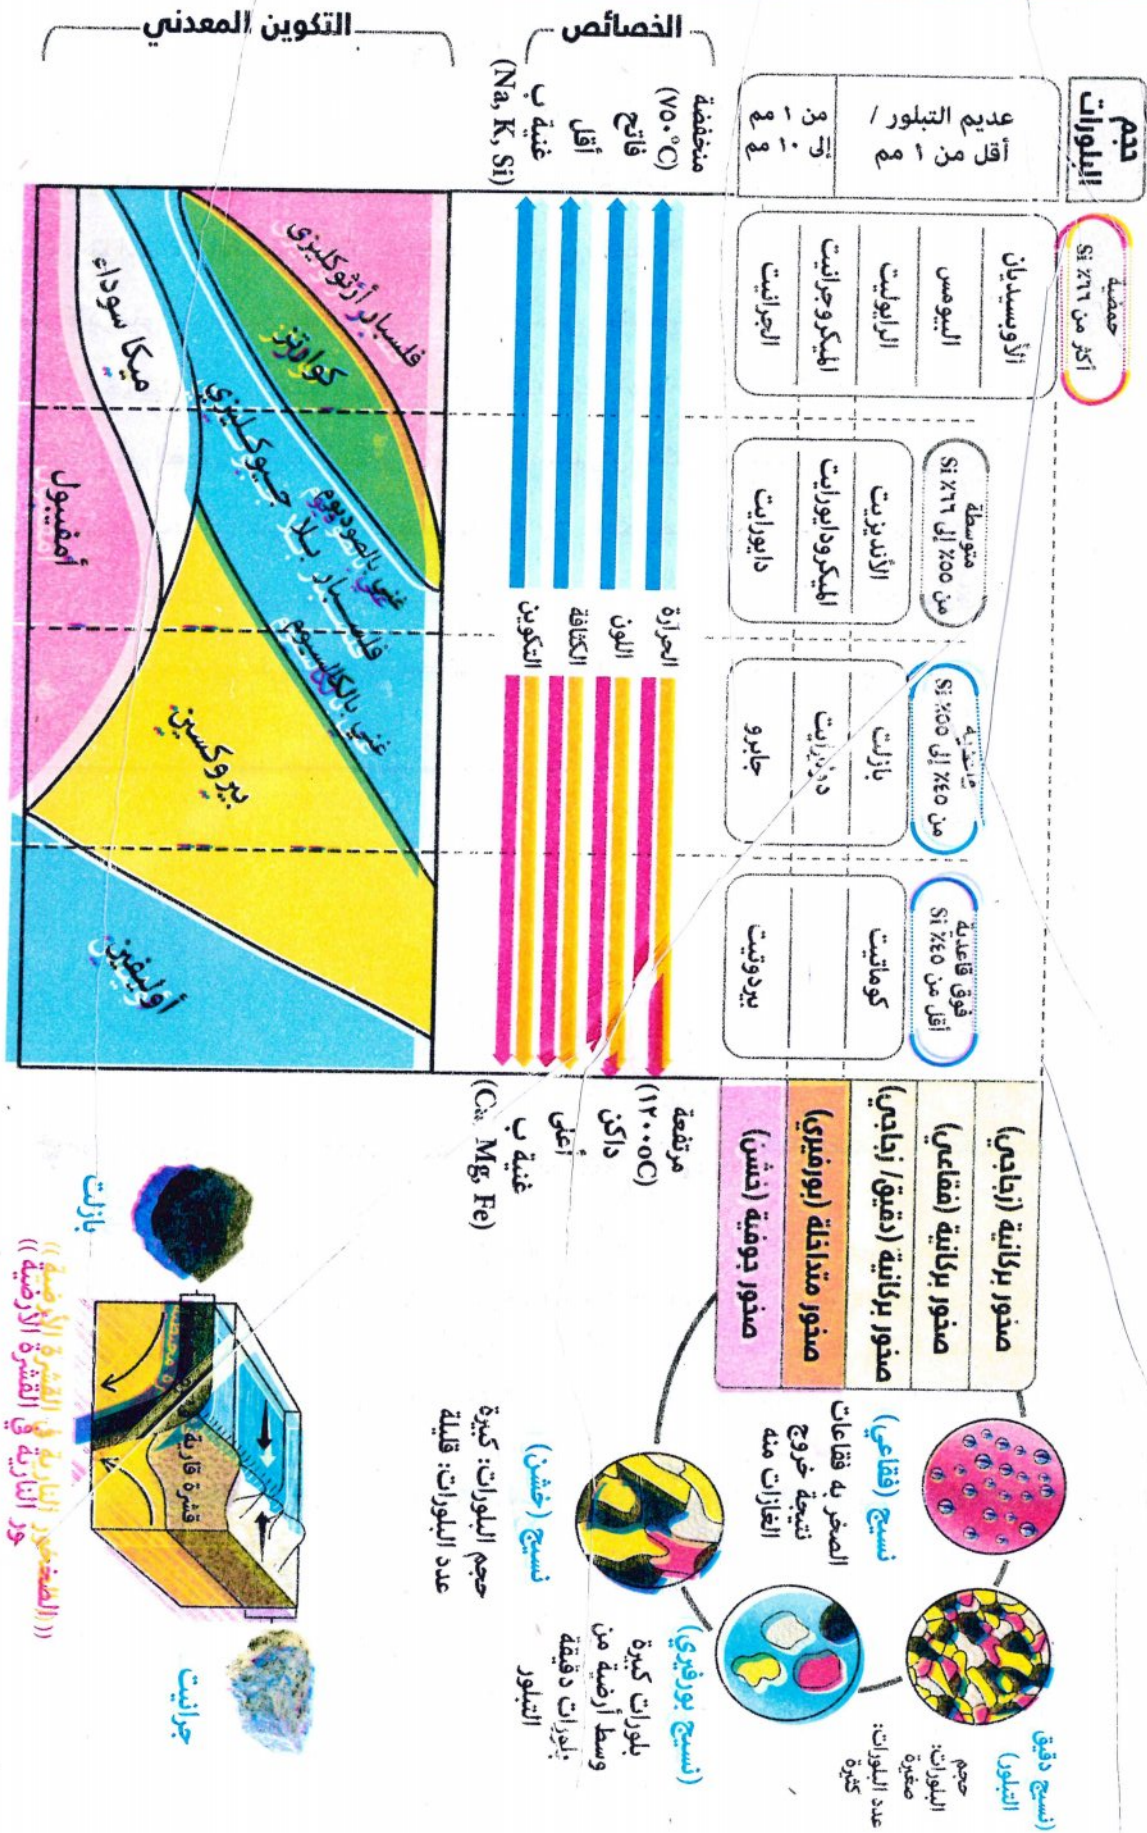 حجم
البلورات
عديم التبلور /
أقل من ١ مم
من ١ مم
حمضية
أكثر من ٦٦٪ Si
الأوبسيديان
البيومس
الرايوليت
الميكروجرانيت
الجرانيت
متوسطة
من ٥٥٪ إلى ٦٦٪ Si
الأنديزيت
الميكرودايورايت
دايورايت
من ٤٥٪ إلى ٥٥٪ Si
بازلت
دوليرايت
جابرو
فوق قاعدية
أقل من ٤٥٪ Si
كوماتيت
بيردوتيت
صخور بركانية (زجاجي)
صخور بركانية (فقاعي)
صخور بركانية (دقيق/ زجاجي)
صخور متداخلة (بورفيري)
صخور جوفية (خشن)
الخصائص
منخفضة
(٧٥٠°C)
فاتح
أقل
غنية ب
(Na, K, Si)
الحرارة
اللون
الكثافة
التكوين
مرتفعة
(١٢٠٠oC)
داكن
أعلى
غنية ب
(Ca, Mg, Fe)
التكوين المعدني
فلسبار أرثوكليزي
كوارتز
غني بالصوديوم
فلسبار بلاجيوكليزي
غني بالكالسيوم
ميكا سوداء
أمفيبول
بيروكسين
أوليفين
(نسيج دقيق
التبلور)
حجم
البلورات:
صغيرة
عدد البلورات:
كثيرة
نسيج (فقاعي)
الصخر به فقاعات
نتيجة خروج
الغازات منه
(نسيج بورفيري)
بلورات كبيرة
وسط أرضية من
بلورات دقيقة
التبلور
نسيج (خشن)
حجم البلورات: كبيرة
عدد البلورات: قليلة
قشرة قارية
بازلت
جرانيت
((الصخور النارية في القشرة الأرضية))